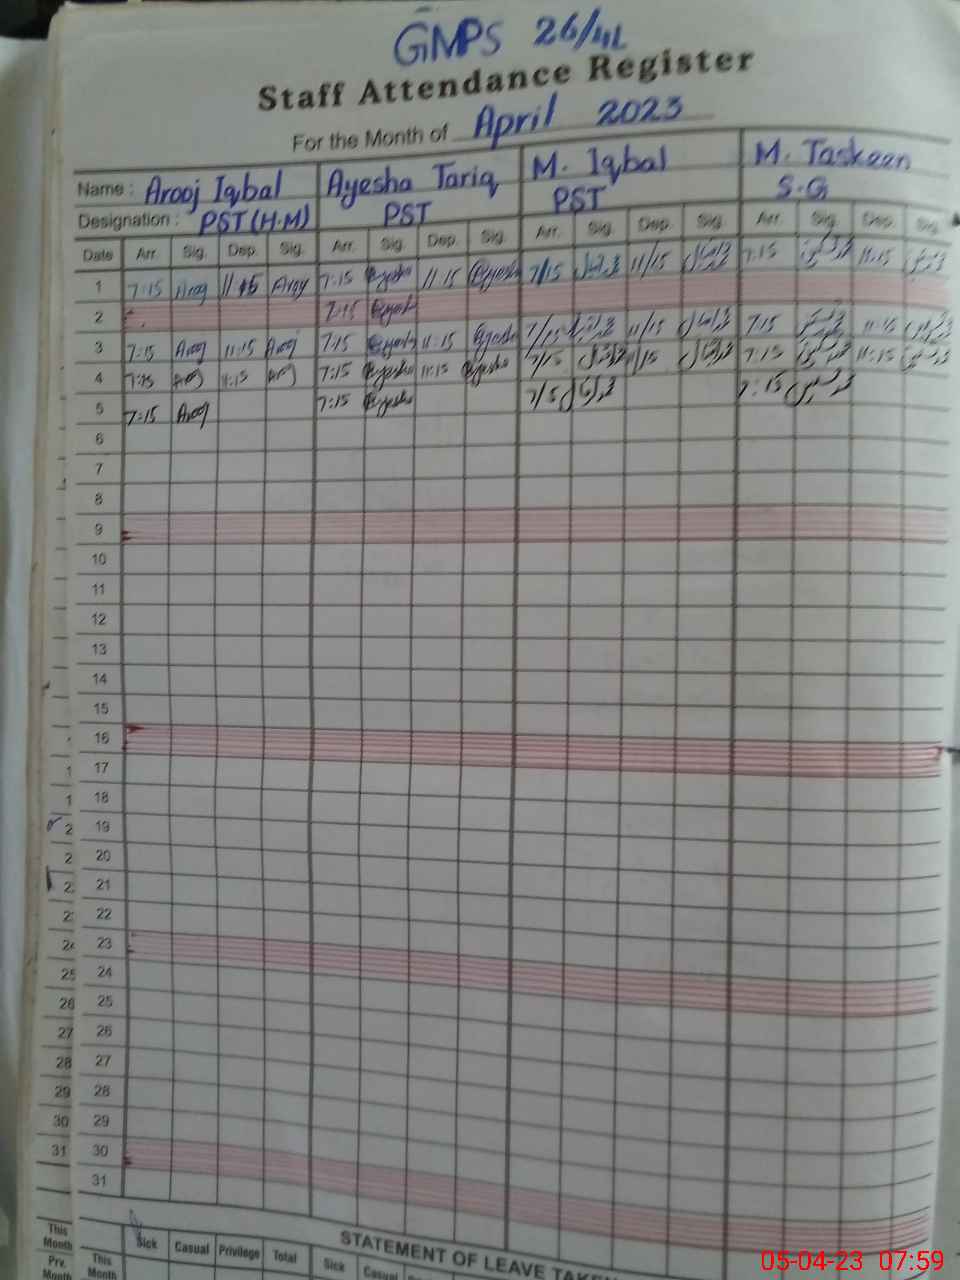 GMPS 26/4L
Staff Attendance Register
For the Month of April 2023
Name : Arooj Iqbal Ayesha Tariq M. Iqbal M. Taskeen
Designation : PST (H.M) PST PST S.G
Date Arr. Sig. Dep. Sig. Arr. Sig. Dep. Sig. Arr. Sig. Dep. Sig. Arr. Sig. Dep. Sig.
1 7:15 Arooj 11:15 Arooj 7:15 Ayesha 11:15 Ayesha 7/15 11/15 7:15 11:15
2 7:15 Ayesha
3 7:15 Arooj 11:15 Arooj 7:15 Ayesha 11:15 Ayesha 7/15 11/15 7:15 11:15
4 7:15 Arooj 11:15 Arooj 7:15 Ayesha 11:15 Ayesha 7/15 11/15 7:15 11:15
5 7:15 Arooj 7:15 Ayesha 7/15 7:15
6
7
8
9
10
11
12
13
14
15
16
1 17
1 18
2 19
2 20
2 21
2 22
24 23
25 24
26 25
27 26
28 27
29 28
30 29
31 30
31
STATEMENT OF LEAVE TAKEN
This Month Sick Casual Privilege Total Sick Casual
Prv. Month This Month
05-04-23 07:59